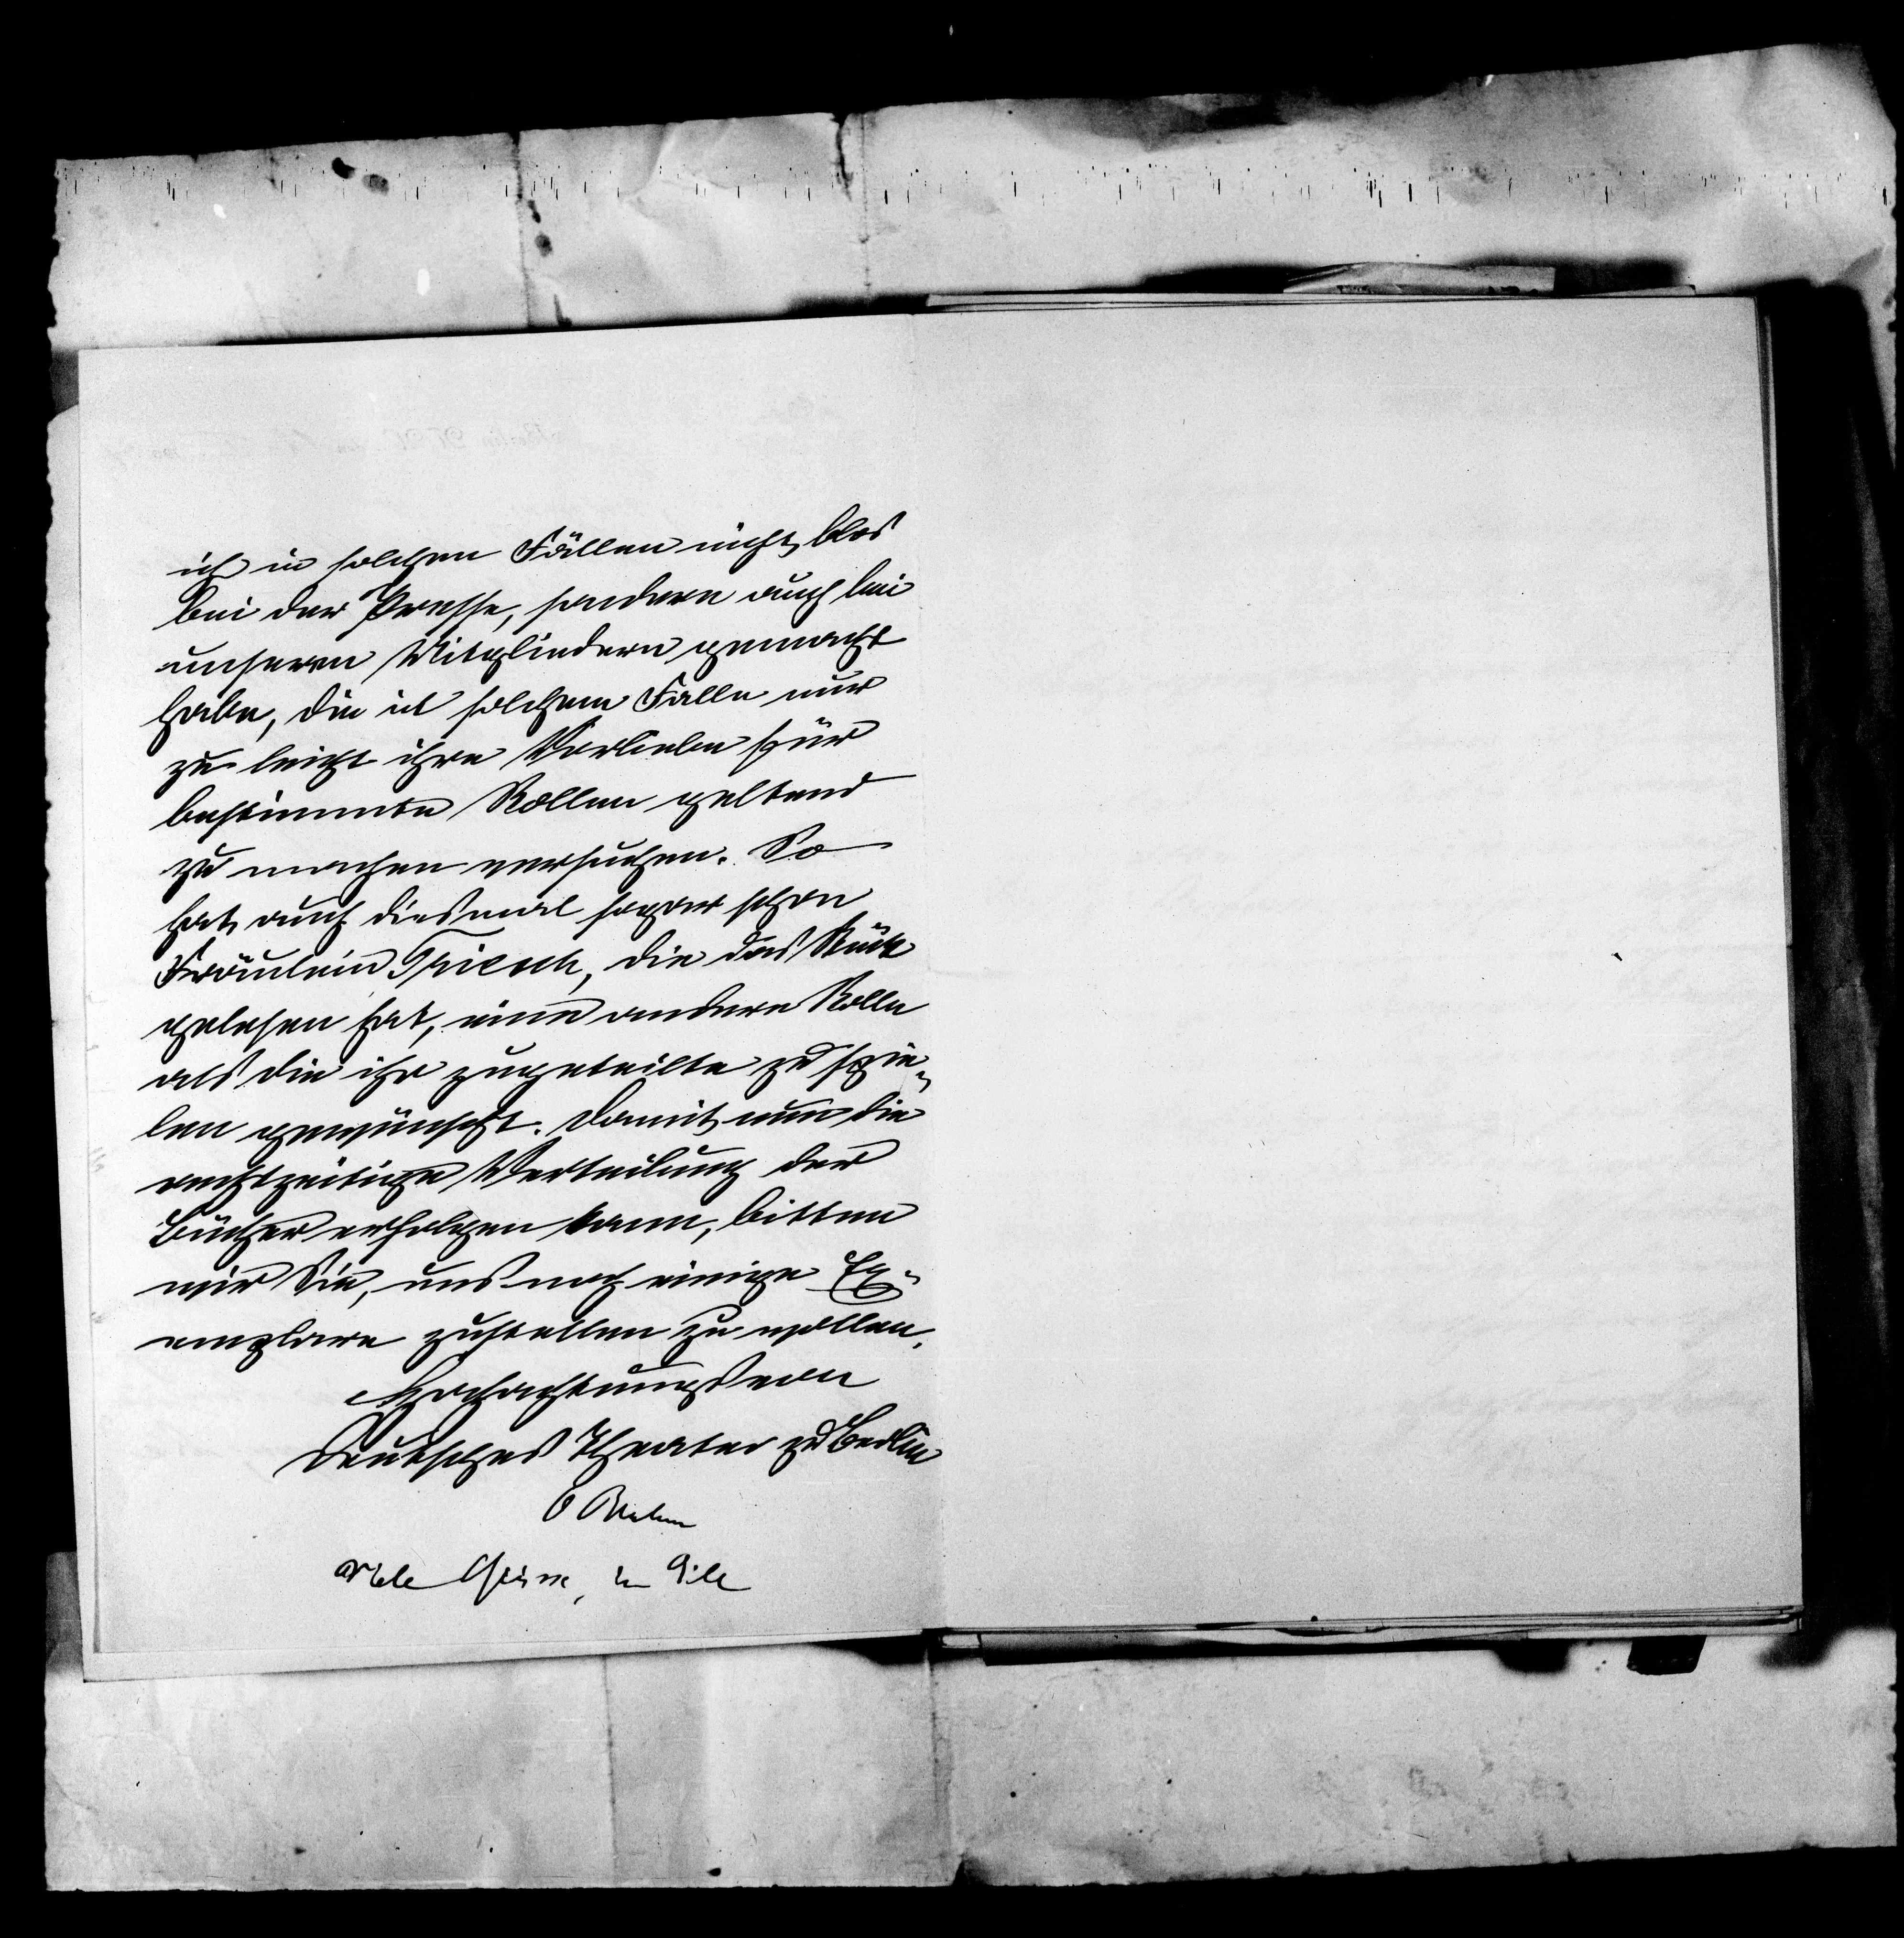 ich in solchen Fällen nicht blos
bei der Presse, sondern auch bei
unseren Mitgliedern gemacht
habe, die in solchem Falle nur
zu leicht ihre Vorliebe für
bestimmte Rollen geltend
zu machen versuchen. So
hat auch diesmal sogar schon
Fräulein Triesch, die das Stück
gelesen hat, eine andere Rolle
als die ihr zugeteilte zu spie-
len gewünscht. Damit nun die
rechtzeitige Verteilung der
Bücher erfolgen kann, bitten
wir Sie, uns noch einige Ex-
emplare zustellen zu wollen.
Hochachtungsvoll
Deutsches Theater zu Berlin
O Brahm
Viele Grüsse, in Eile